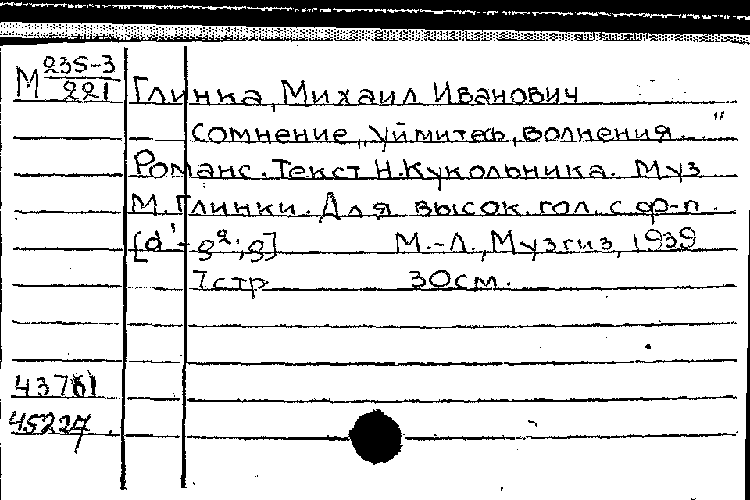 М 235-3
221
Глинка, Михаил Иванович
Сомнение „Уймитесь, волнения..."
Романс. Текст Н. Кукольника. Муз
М. Глинки. Для высок. гол. с ф-п.
[d¹-g²; g] М.-Л., Музгиз, 1939
7 стр 30 см.
45227